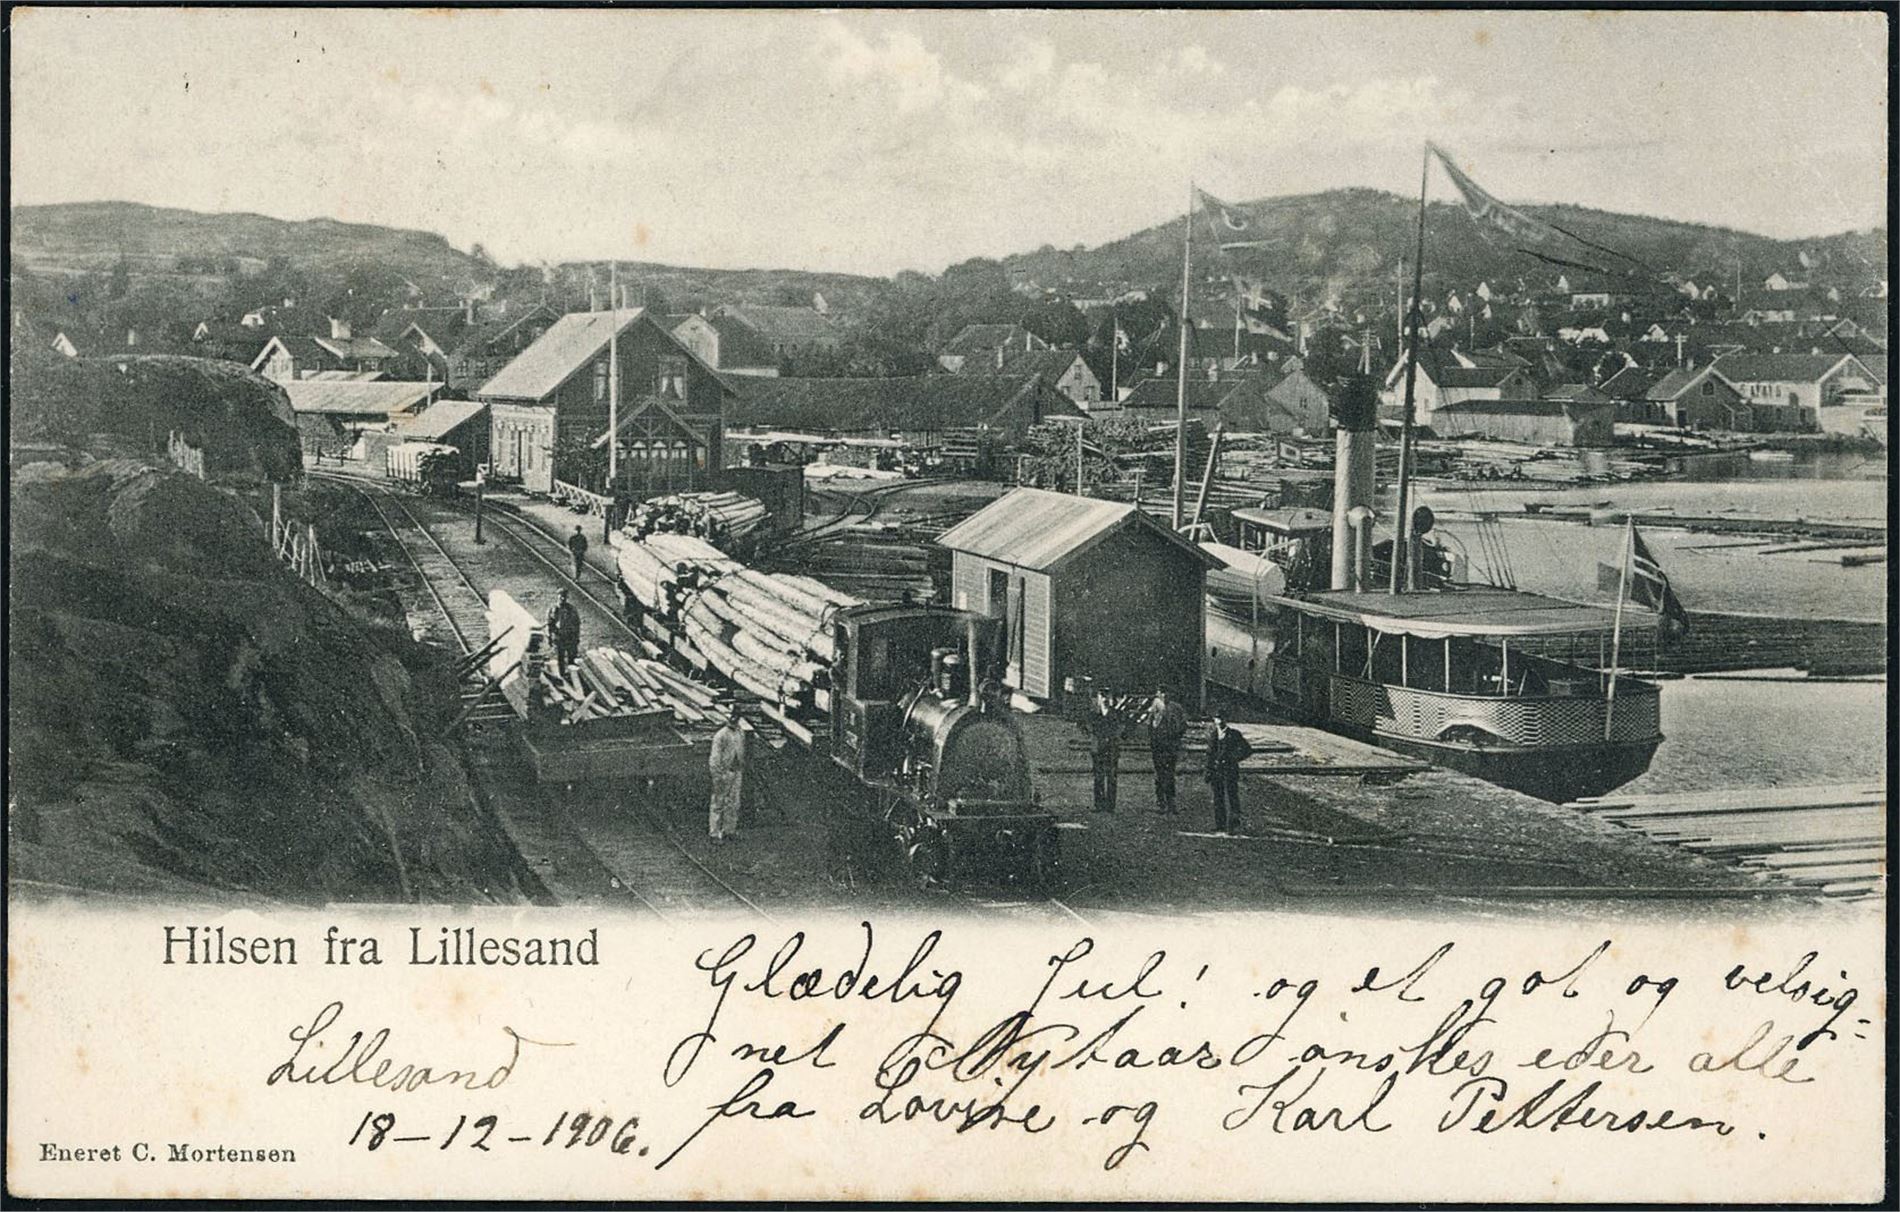 Hilsen fra Lillesand
Glædelig Jul! og et got og velsig=
net Nytaar ønskes eder alle
fra Lovise og Karl Pettersen.
Lillesand
18-12-1906.
Eneret C. Mortensen